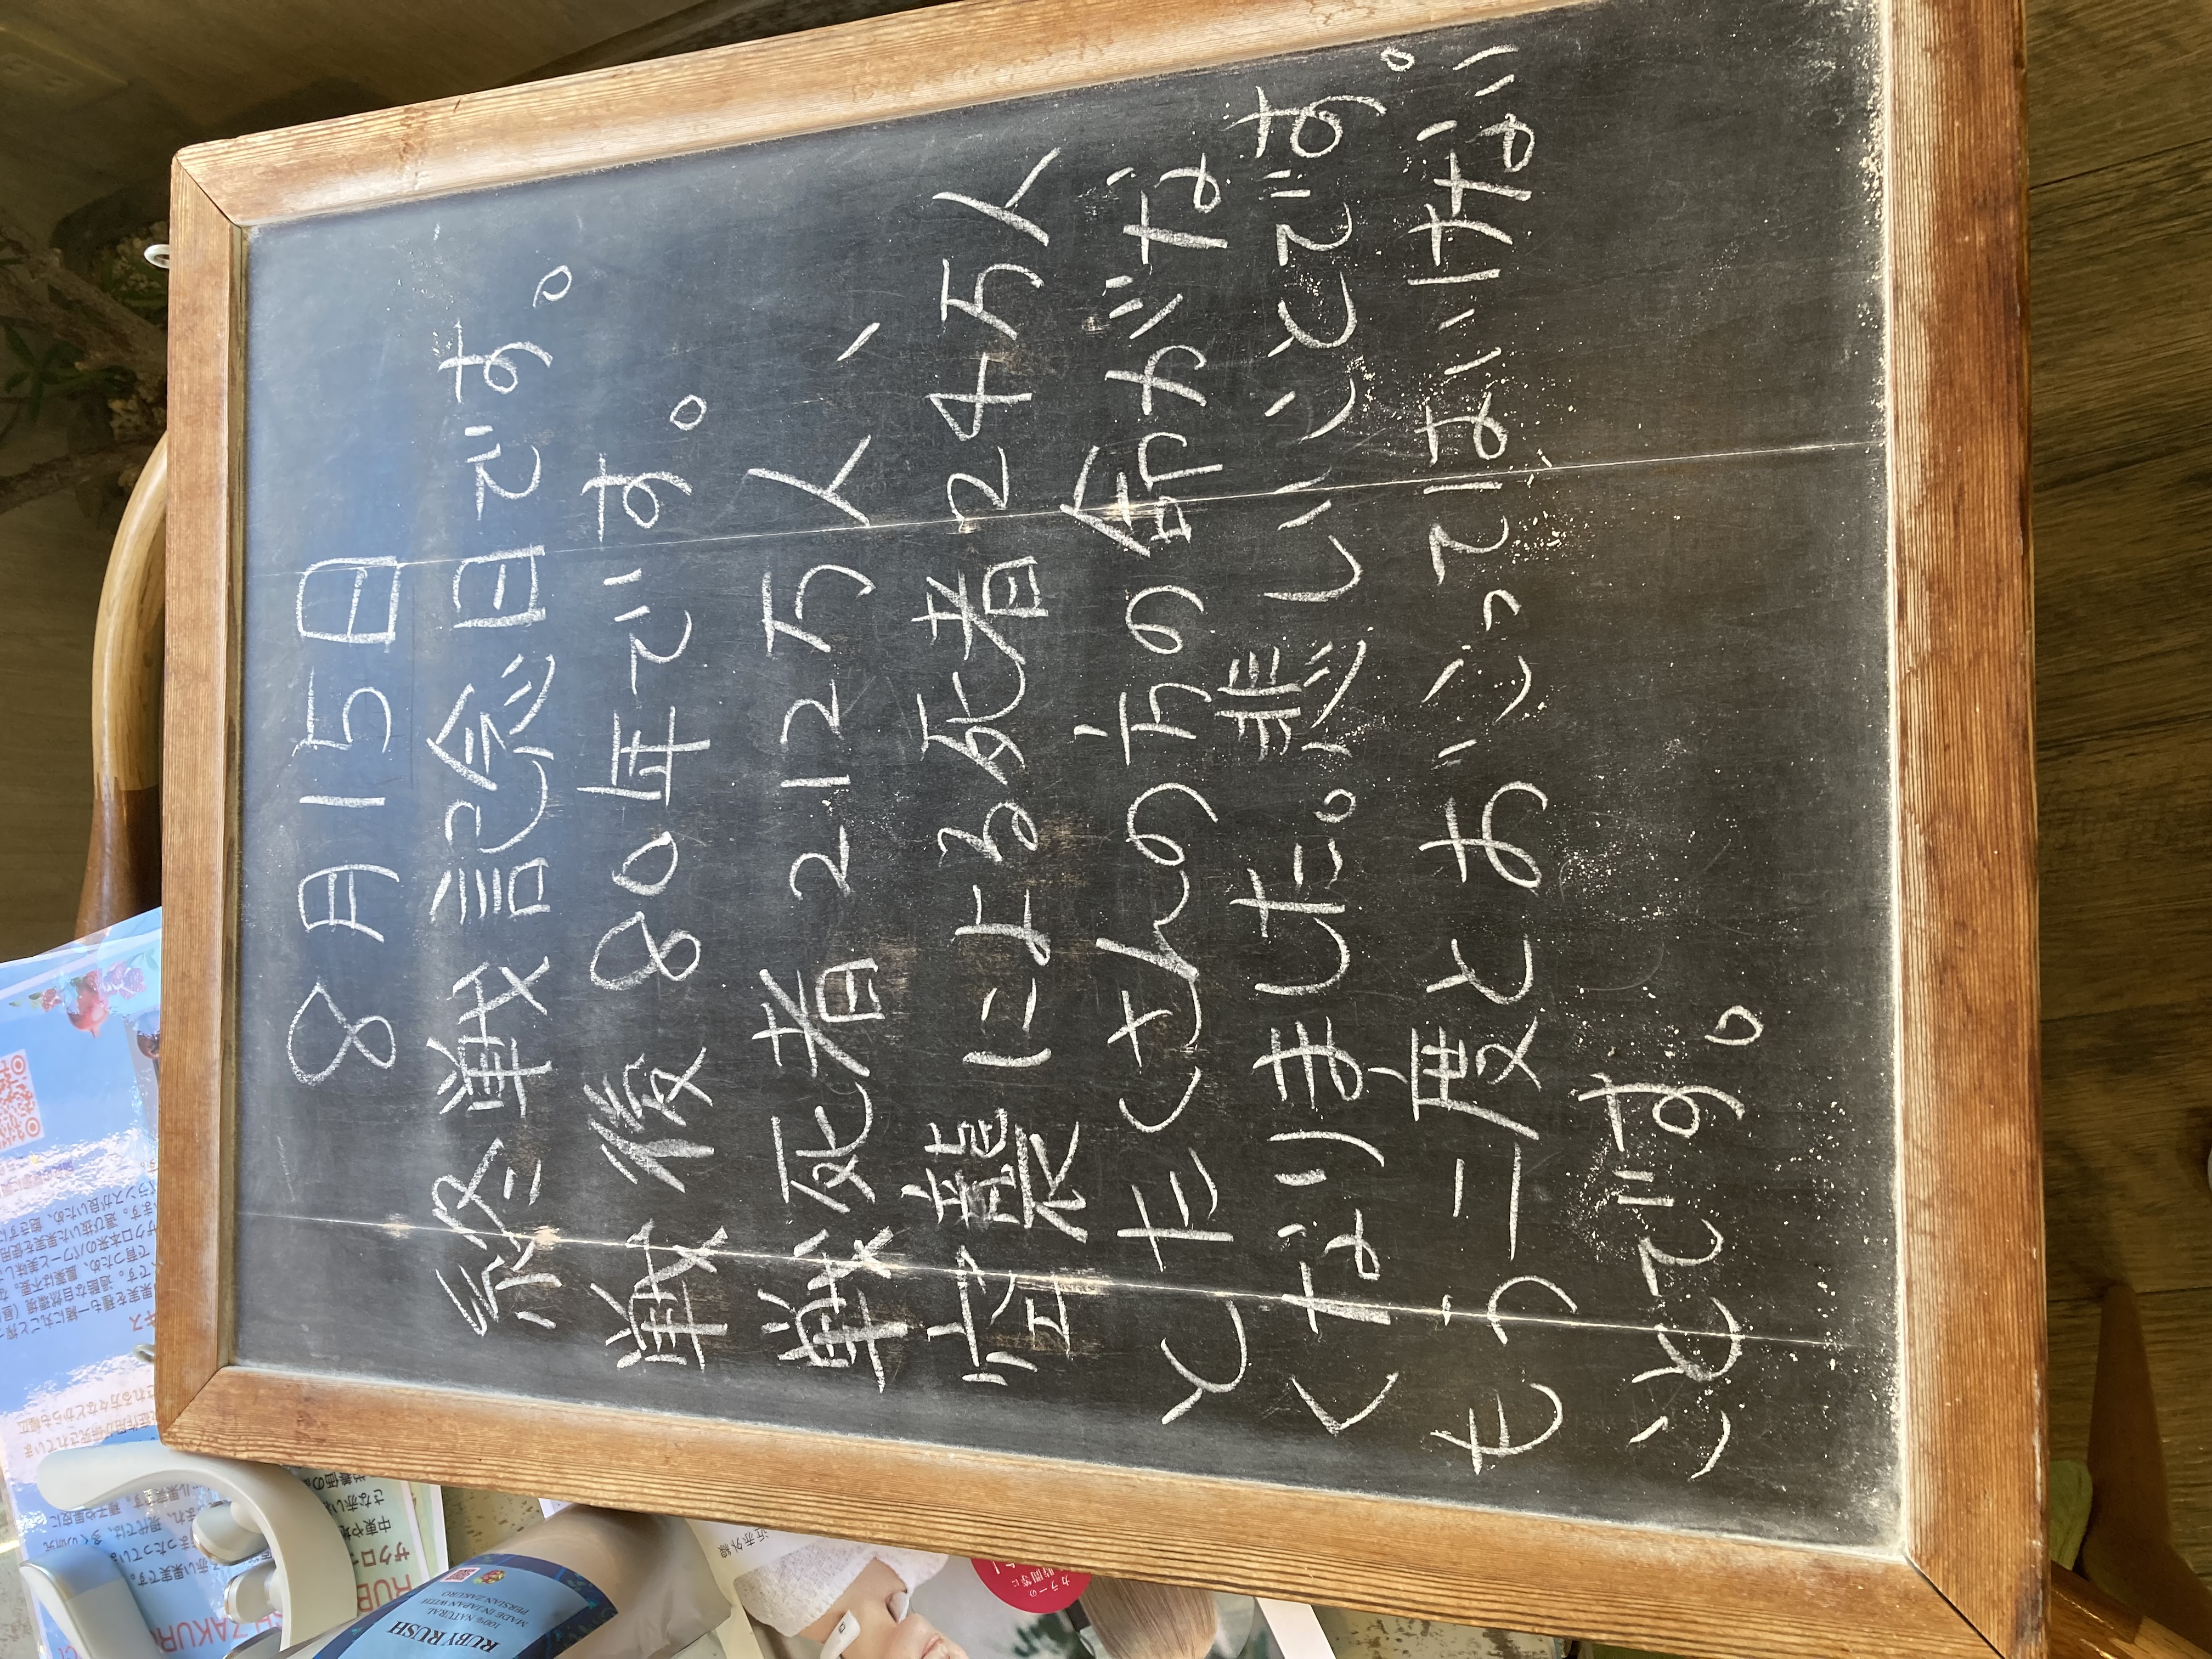 8月15日
終戦記念日です。
戦後80年です。
戦死者212万人、
空襲による死者24万人
とたくさんの方の命がな
くなりました。悲しいことです。
もう二度とおこってはいけない
ことです。
RUBY RUSH
100% NATURAL
MADE IN JAPAN WITH
PERSIAN ZAKURO
近赤外線